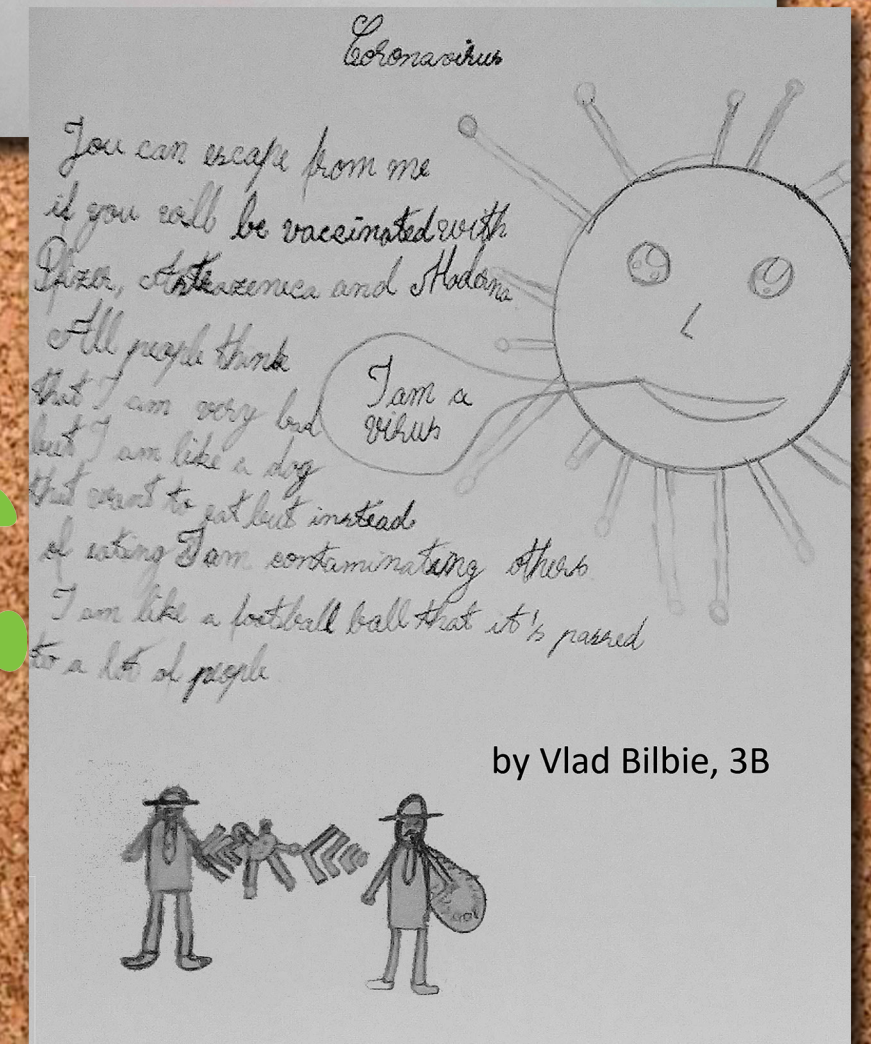 Coronavirus
You can escape from me
if you will be vaccinated with
Pfizer, Astrazeneca and Moderna
All people think
that I am very bad
but I am like a dog
that want to eat but instead
of eating I am contaminating others
I am like a football ball that it's passed
to a lot of people
I am a
virus
by Vlad Bilbie, 3B